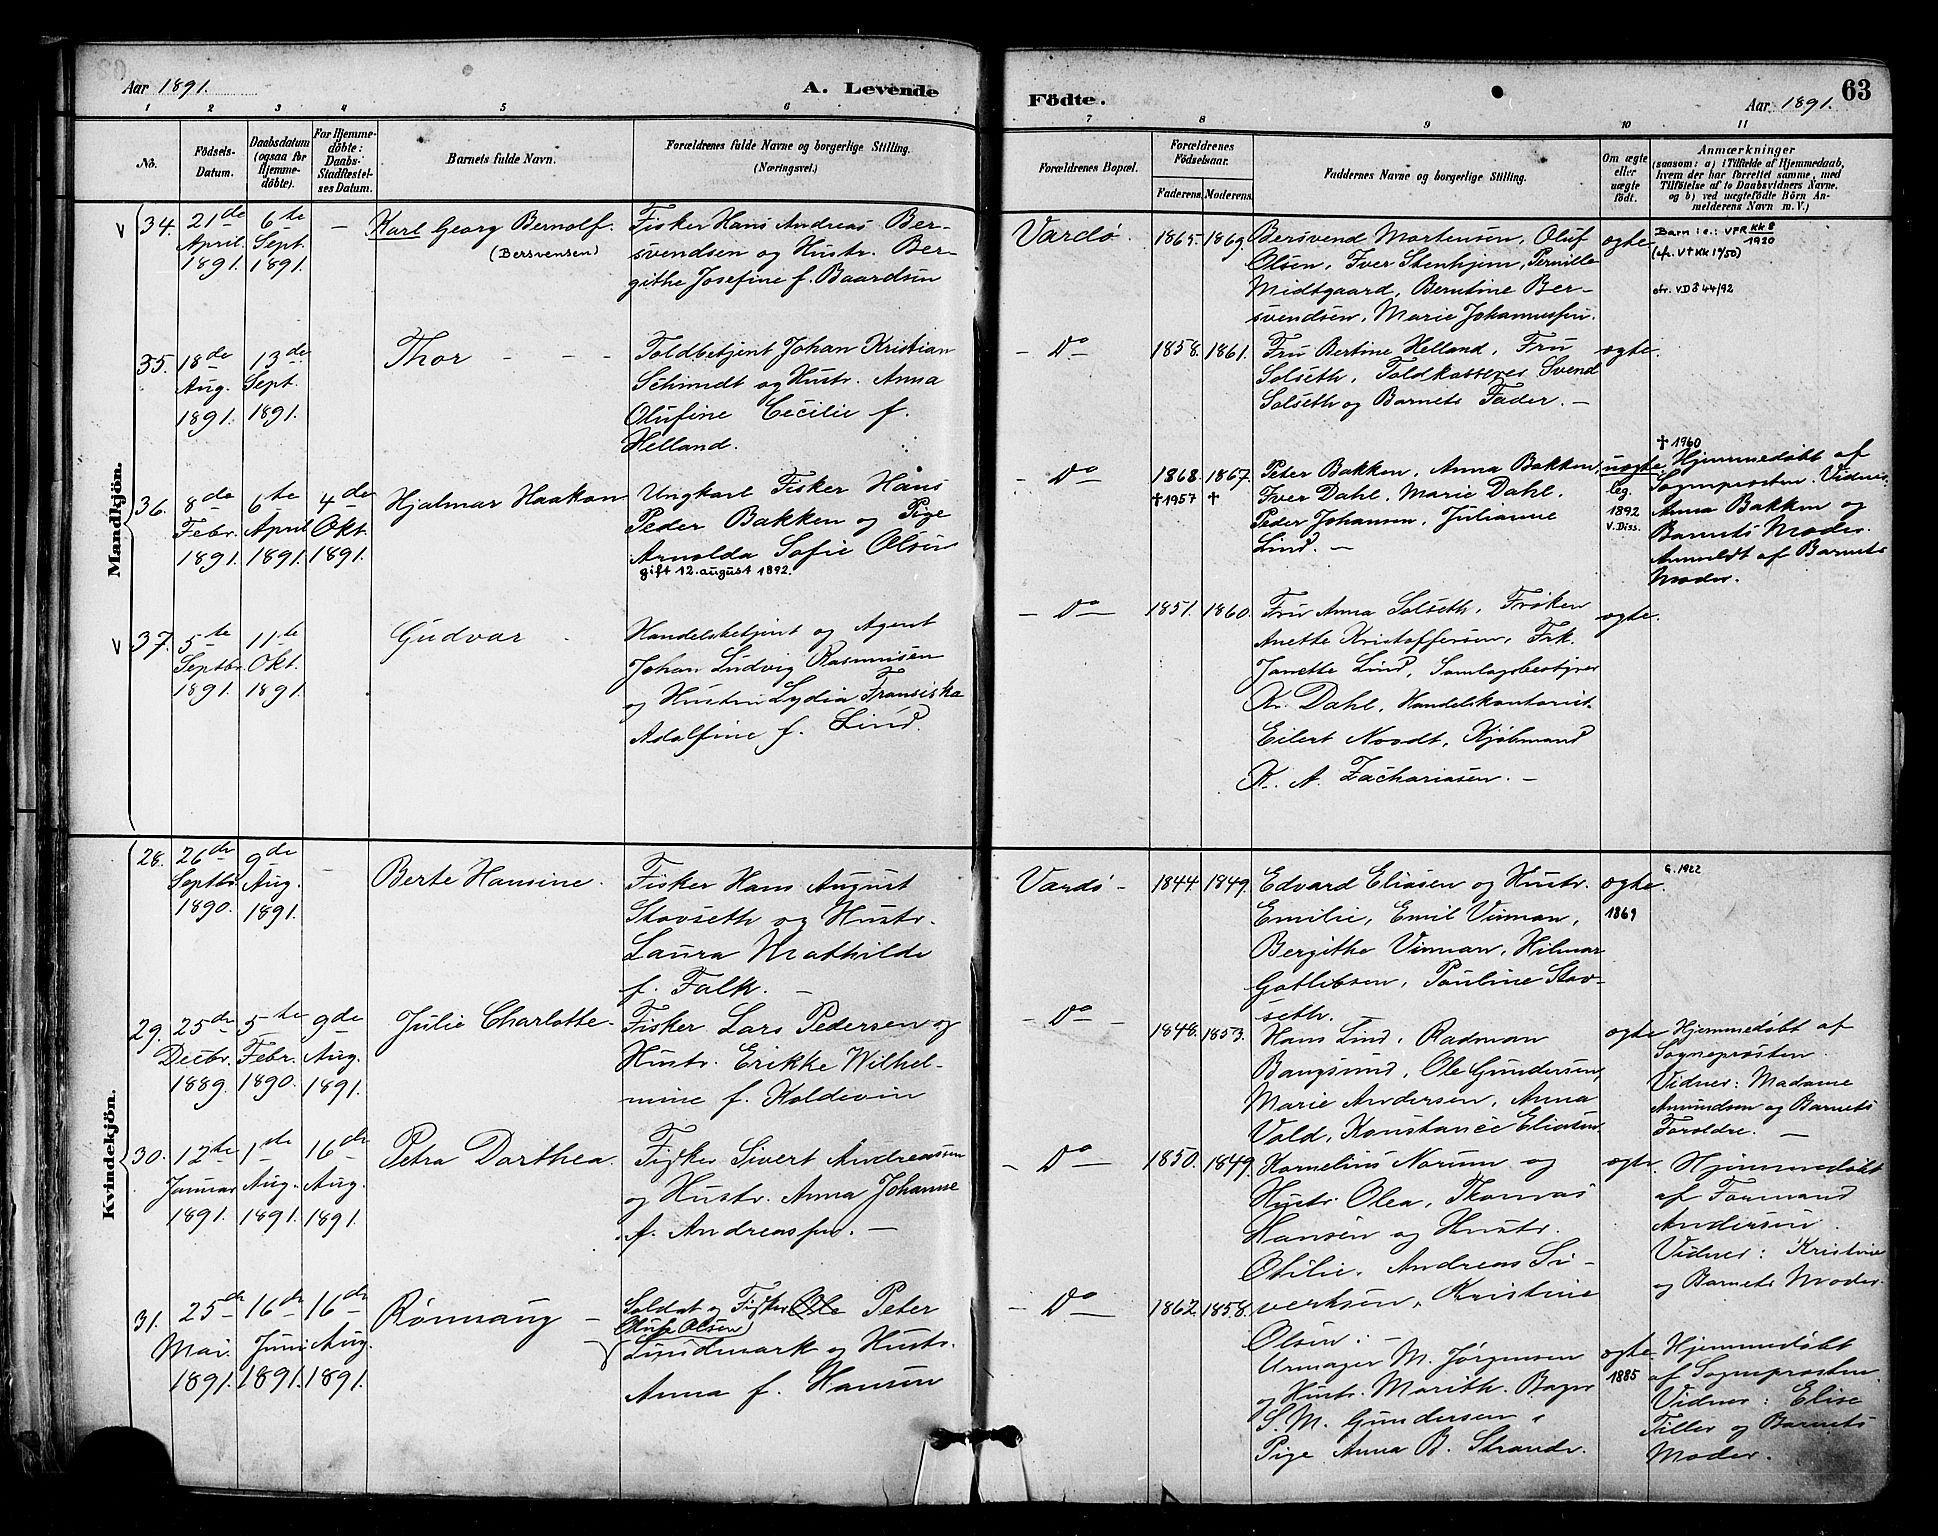 Aar 1891.
A. Levende
1 2 3 4 5 6
No.
Födsels-
Datum.
Daabsdatum
(ogsaa for
Hjemme-
döbte).
For Hjemme-
döbte:
Daabs-
Stadfæstel-
ses Datum.
Barnets fulde Navn.
Forældrenes fulde Navne og borgerlige Stilling.
(Næringsvei.)
Mandkjön.
34.
21de
April
1891.
6te
Sept.
1891.
—
Karl Georg Bernolf.
(Bersvensen)
Fisker Hans Andreas Ber-
svendsen og Hustr. Ber-
githe Josefine f. Baardsen
35.
18de
Aug.
1891.
13de
Sept.
1891.
Thor — — —
Toldbetjent Johan Kristian
Schmidt og Hustr. Anna
Olufine Cecilie f.
Helland.
36.
8de
Febr.
1891.
6te
April
1891.
4de
Okt.
1891.
Hjalmar Haakon
Ungkarl Fisker Hans
Peder Bakken og Pige
Arnolda Sofie Olsen
gift 12. august 1892.
37.
5te
Septbr.
1891.
11te
Okt.
1891.
Gudvar
Handelsbetjent og Agent
Johan Ludvig Rasmussen
og Hustru Lydia Fransiska
Adolfine f. Lind.
Kvindekjön.
28.
26de
Septbr.
1890.
9de
Aug.
1891.
—
Berte Hansine.
Fisker Hans August
Stavseth og Hustr.
Laura Mathilde
f. Falk. —
29.
25de
Decbr.
1889.
5te
Febr.
1890.
9de
Aug.
1891.
Julie Charlotte.
Fisker Lars Pedersen og
Hustr. Erikke Wilhel-
mine f. Koldevin
30.
12te
Januar
1891.
1ste
Aug.
1891.
16de
Aug.
1891.
Petra Dorthea.
Fisker Sivert Andreassen
og Hustr. Anna Johanne
f. Andreassen. —
31.
25de
Mai.
1891.
16de
Juni
1891.
16de
Aug.
1891.
Rønnaug —
Soldat og Fisker Ole Peter
Oluf Olsen
Lindmark og Hustr.
Anna f. Hansen
Födte.
63
Aar 1891.
7 8 9 10 11
Forældrenes Bopæl.
Forældrenes
Födselsaar.
Faderens.
Moderens.
Faddernes Navne og borgerlige Stilling.
Om ægte
eller
uægte
födt.
Anmærkninger
(saasom: a) i Tilfælde af Hjemmedaab,
hvem der har forrettet samme, med
Tilföielse af to Daabsvidners Navne,
og b) ved uægtefödte Börn An-
melderens Navn m. V.)
Vardø.
1865.
1869.
Bersvend Mortensen, Oluf
Olsen, Iver Stenhjem, Pernille
Midtgaard, Berntine Ber-
svendsen, Marie Johannessen.
ægte
Barn i e.: VFR KK 8
1920
(cfr. V†KK 1950)
cfr. VD 8 44/92
— Do —
1858.
1861.
Fru Bertine Helland, Fru
Solseth, Toldkasserer Svend
Solseth og Barnets Fader. —
ægte.
— Do —
1868.
†1957
1867.
†
Peter Bakken, Anna Bakken,
Iver Dahl, Marie Dahl,
Peder Johansen, Julianne
Lind. —
uægte.
leg.
1892
V.Diss.
† 1960
Hjemmedøbt af
Sogneprosten. Vidner:
Anna Bakken og
Barnets Moder.
Anmeldt af Barnets
Moder.
— Do —
1851.
1860.
Fru Anna Solseth, Frøken
Anette Kristoffersen, Frk.
Janette Lind, Samlagsbestyrer
K. Dahl, Handelskontorist
Eilert Noodt, Kjøbmand
K. A. Zachariasen. —
ægte.
Vardø —
1844.
1849.
Edvard Eliasen og Hustr.
Emilie, Emil Vinman,
Bergithe Vinman, Hilmar
Gotlibsen, Pauline Stav-
seth.
ægte.
1869
G. 1922
— Do —
1848.
1853.
Hans Lind, Radman
Bangsund, Ole Gundersen,
Marie Andersen, Anna
Vold, Konstance Eliasen.
ægte
Hjemmedøbt af
Sogneprosten.
Vidner: Madame
Amundsen og Barnets
Forældre. —
— Do —
1850.
1849.
Kornelius Norum og
Hustr. Olea, Thomas
Hansen og Hustr.
Otilie, Andreas Si-
vertsen, Kristine
Olsen. —
ægte.
Hjemmedøbt
af Formand
Andersen.
Vidner: Kristine
og Barnets Moder.
— Do —
1862.
1858.
Urmager M. Jørgensen
og Hustr. Marith. Bager
S. M. Gundersen,
Pige Anna B. Strand.
ægte.
1885
Hjemmedøbt
af Sogneprosten.
Vidner: Elise
Tiller og Barnets
Moder.